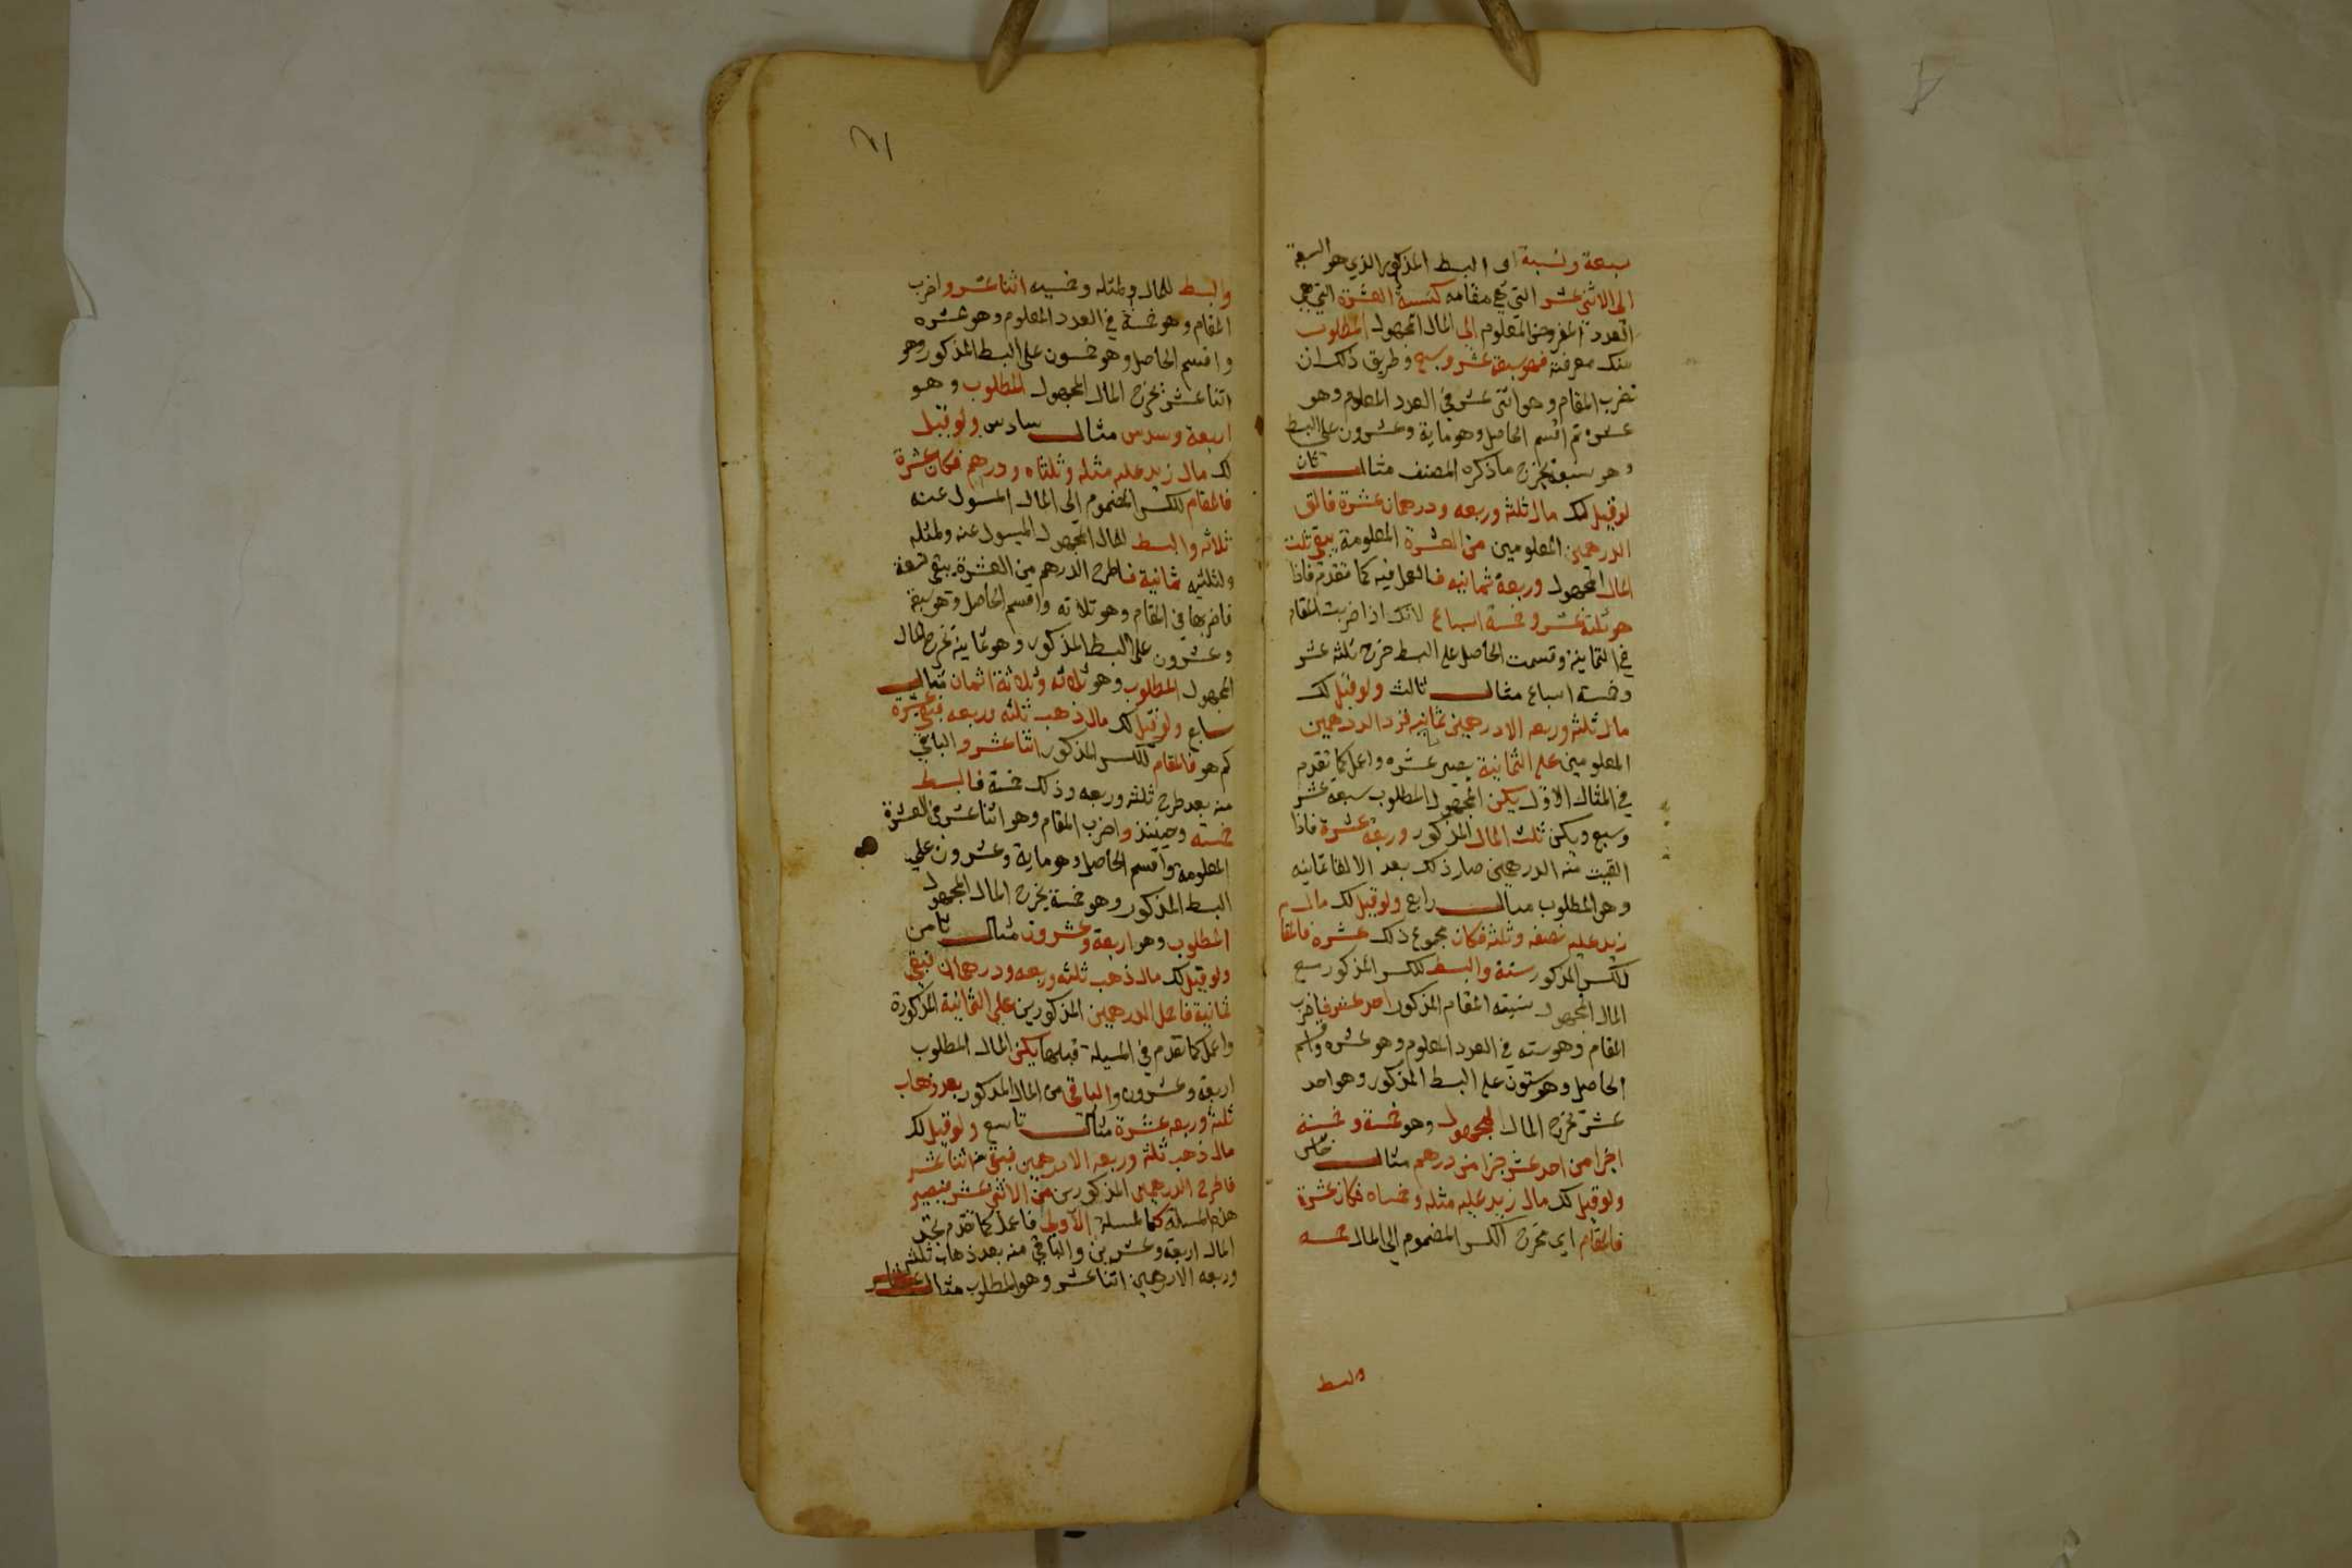 سبعة ونسبة اى البسط المذكور الذي هو السبعة
الى الاثنى عشر التي هي مقامه كنسبة العشرة التي هي
العدد المفروض المعلوم الى المال المجهول المطلوب
منك معرفته فهو سبعة عشر وسبع وطريق ذلك ان
تضرب المقام وهو اثنى عشر في العدد المعلوم وهو
عشره ثم اقسم الحاصل وهو ماية وعشرون على البسط
وهو سبعة يخرج ما ذكره المصنف مثال ثان
لو قيل لك مال ثلثه وربعه ودرهمان عشرة فالق
الدرهمين المعلومين من العشرة المعلومة يبقى ثلث
المال المجهول وربعه ثمانيه فالعمل فيه كما تقدم فاذا
هو ثلثة عشر وخمسة اسباع لانك اذا ضربت المقام
في الثمانية وقسمت الحاصل على البسط خرج ثلثة عشر
وخمسة اسباع مثال ثالث ولو قيل لك
مال ثلثه وربعه الا درهمين ثمانيه فزد الدرهمين
المعلومين على الثمانية يصير عشره واعمل كما تقدم
في المثال الاول يكن المجهول المطلوب سبعة عشر
وسبع ويكن ثلث المال المذكور وربعه عشرة فاذا
القيت منه الدرهمين صار ذلك بعد الالقا ثمانيه
وهو المطلوب مثال رابع ولو قيل لك مال
زيد عليه نصفه وثلثه فكان مجموع ذلك عشره فالمقا
للكسر المذكور ستة والبسط للكسر المذكور مع
المال المجهول المقام المذكور احد عشر فاضرب
المقام وهو سته في العدد المعلوم وهو عشره واقسم
الحاصل وهو ستون على البسط المذكور وهو احد
عشر يخرج المال المجهول وهو خمسة وخمسة
اجزا من احد عشر جزا من درهم مثال خامس
ولو قيل لك مال زيد عليه مثله وخمساه فكان عشرة
فالمقام اي مخرج الكسر المضموم الى المال خمسه
والبسط
والبسط للمال ولمثله وخمسيه اثنا عشر واضرب
المقام وهو خمسة في العدد المعلوم وهو عشره
واقسم الحاصل وهو خمسون على البسط المذكور وهو
اثنا عشر يخرج المال المجهول المطلوب وهو
اربعة وسدس مثال سادس ولو قيل
لك مال زيد عليه مثله وثلثاه ودرهم فكان عشرة
فالمقام للكسر المضموم الى المال المسول عنه
ثلاثه والبسط للمال المجهول الميسول عنه ولمثله
ولثلثيه ثمانية فاطرح الدرهم من العشرة يبقى تسعة
فاضربها في المقام وهو ثلاثه واقسم الحاصل وهو سبعة
وعشرون على البسط المذكور وهو ثمانية يخرج المال
المجهول المطلوب وهو ثلاثه وثلاثة اثمان مثال
سابع ولو قيل لك مال ذهب ثلثه وربعه فبقي عشرة
كم هو فالمقام للكسر المذكور اثنا عشر والباقي
منه بعد طرح ثلثه وربعه وذلك خمسة فالبسط
خمسه وحينئذ واضرب المقام وهو اثنا عشر في العشرة
المعلومه واقسم الحاصل وهو ماية وعشرون على
البسط المذكور وهو خمسة يخرج المال المجهول
المطلوب وهو اربعة وعشرون مثال ثامن
ولو قيل لك مال ذهب ثلثه وربعه ودرهمان فبقي
ثمانية فاحمل الدرهمين المذكورين على الثمانية المذكورة
واعمل كما تقدم في المسيلة قبلها يكن المال المطلوب
اربعة وعشرون والباقي من المال المذكور بعد ذهاب
ثلثه وربعه عشرة مثال تاسع ولو قيل لك
مال ذهب ثلثه وربعه الا درهمين فبقي اثنا عشر
فاطرح الدرهمين المذكورين من الاثنى عشر فيصير
هذه المسيلة كالمسيلة الاولى فاعمل كما تقدم تجد
المال اربعة وعشرين والباقي منه بعد ذهاب ثلثه
وربعه الا درهمين اثنا عشر وهو المطلوب مثال عاشر